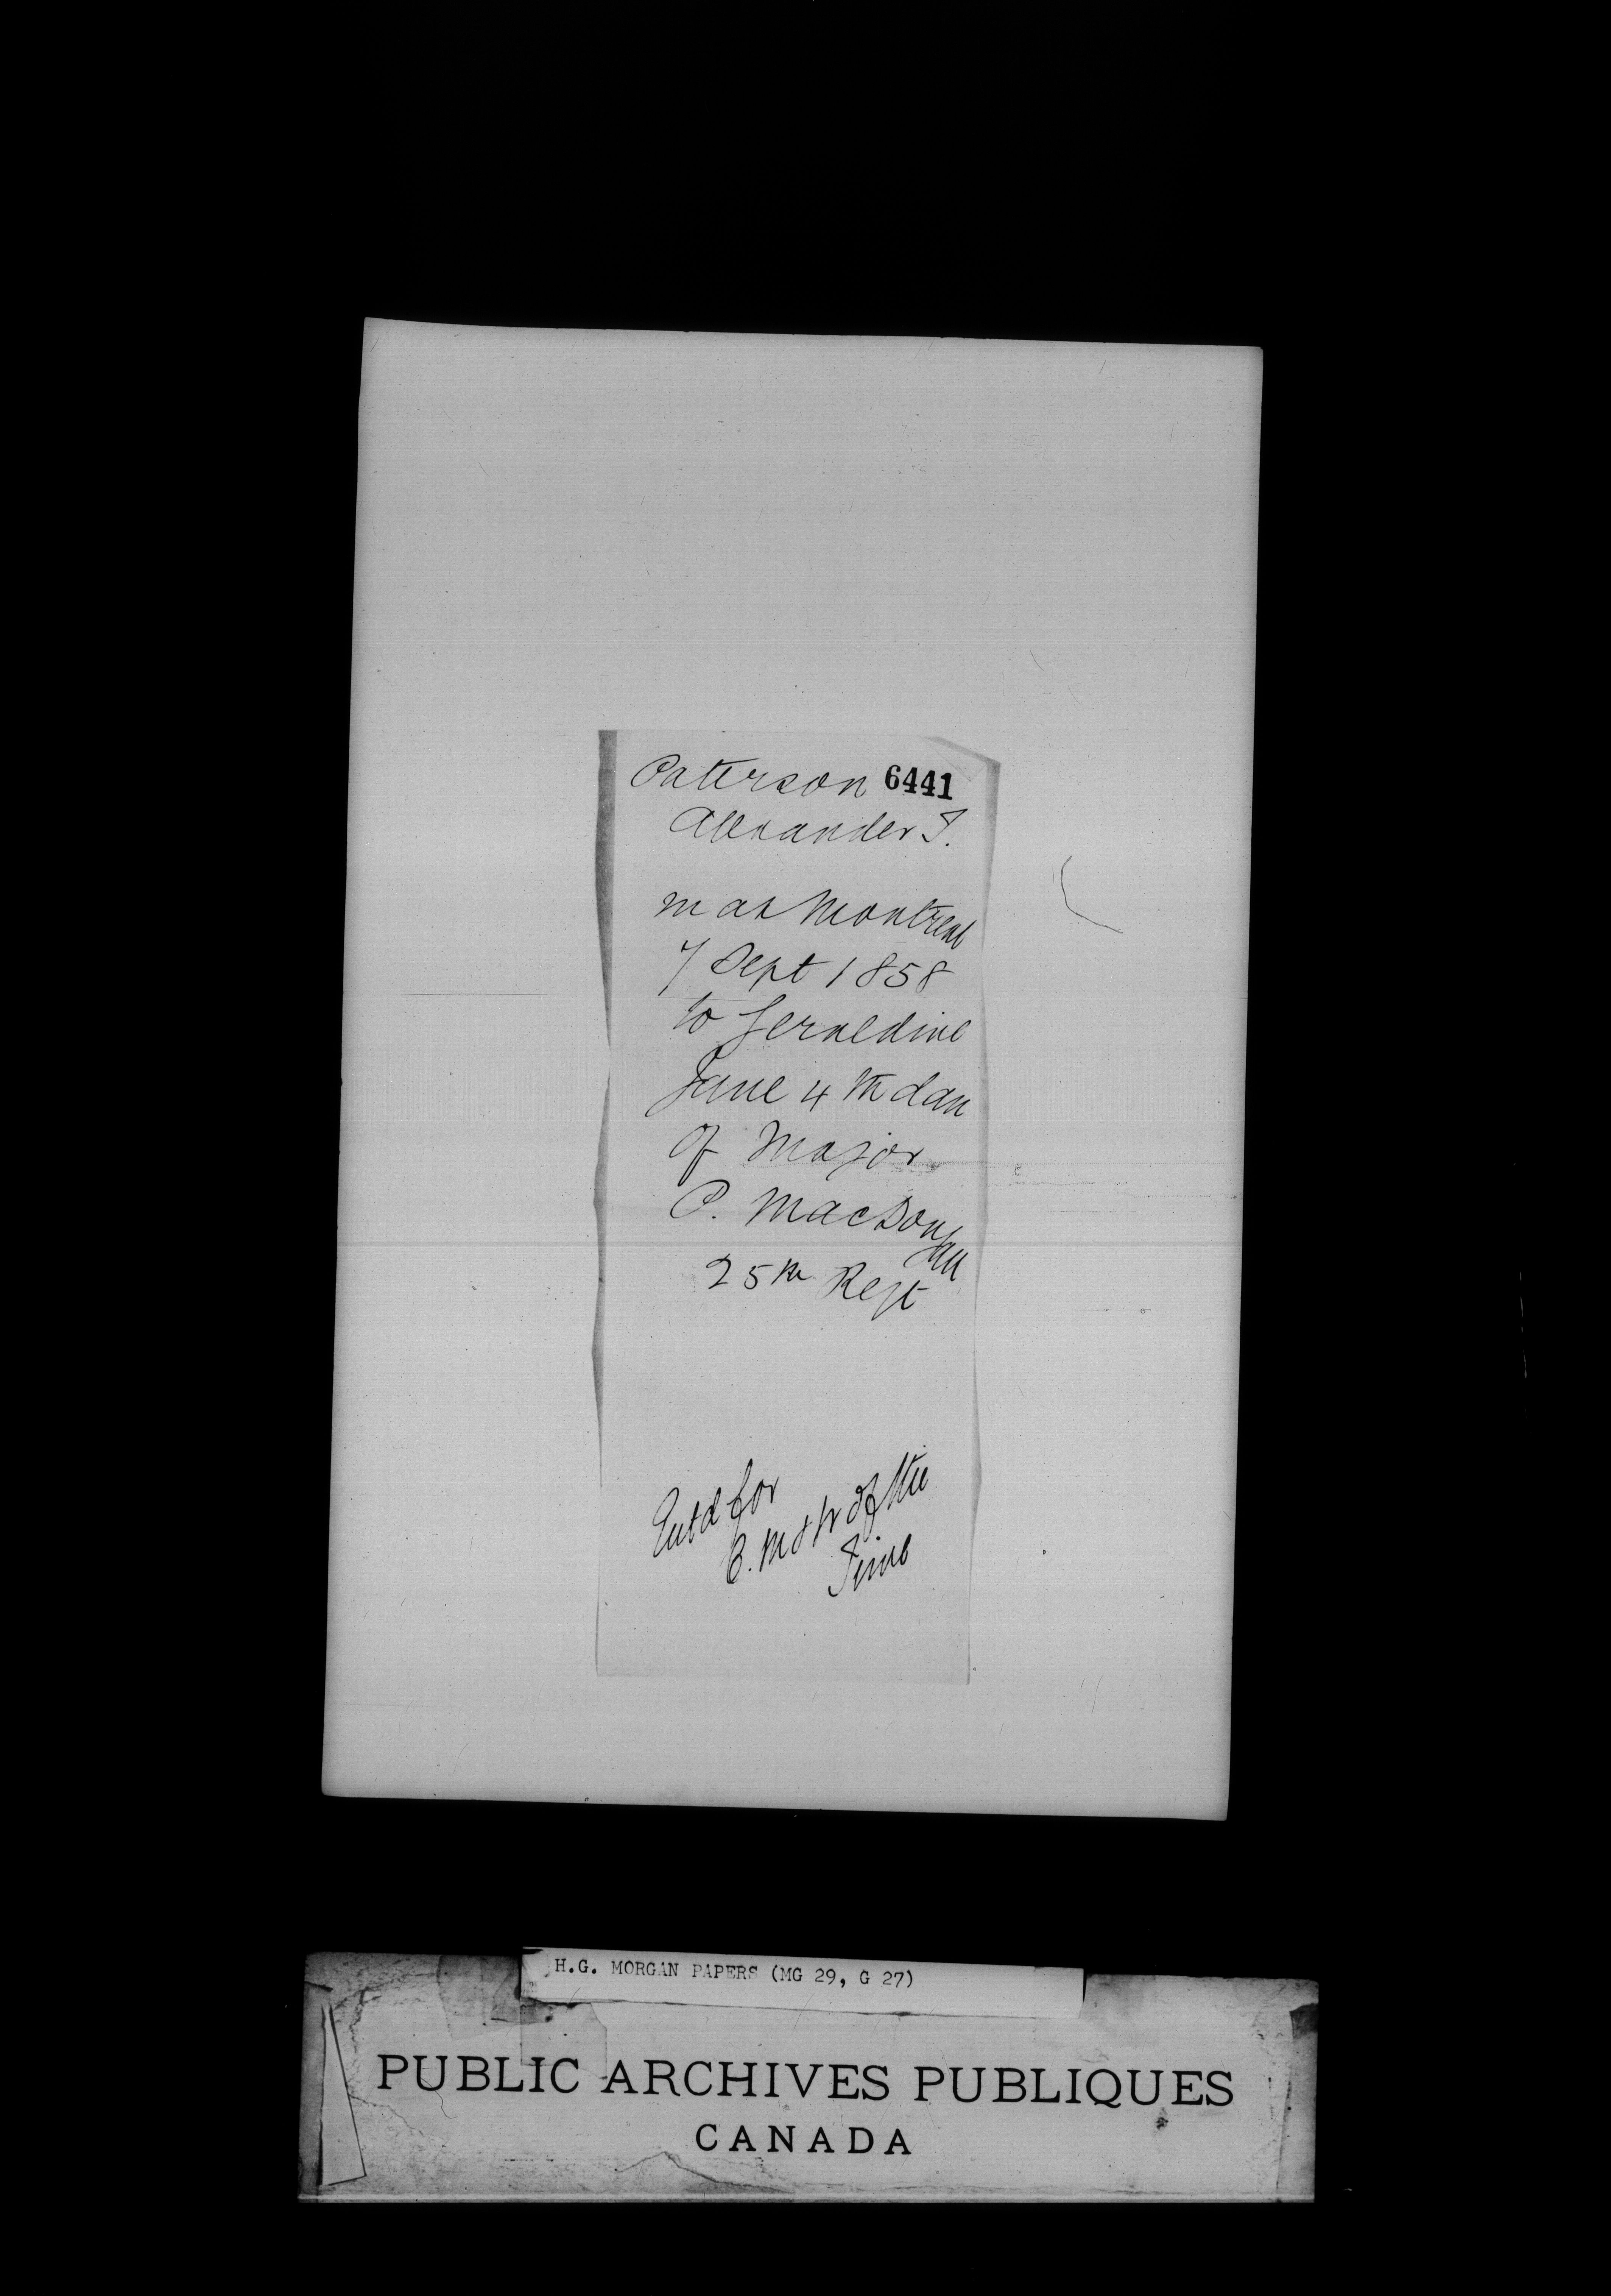 Paterson 6441
Alexander T.
m at Montreal
7 Sept 1858
to Geraldine
Jane 4th dau
of Major
P. MacDougall
25th Regt
Entd for
C. M & W of the
Time
H.G. MORGAN PAPERS (MG 29, G 27)
PUBLIC ARCHIVES PUBLIQUES
CANADA